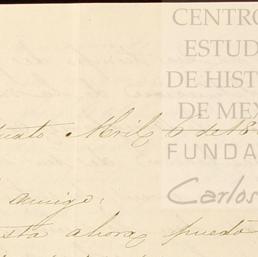 CENTRO
ESTUD
DE HIST
DE MEX
FUNDA
Carlos
uato Abril 6 de 18
amigo:
sta ahora puedo